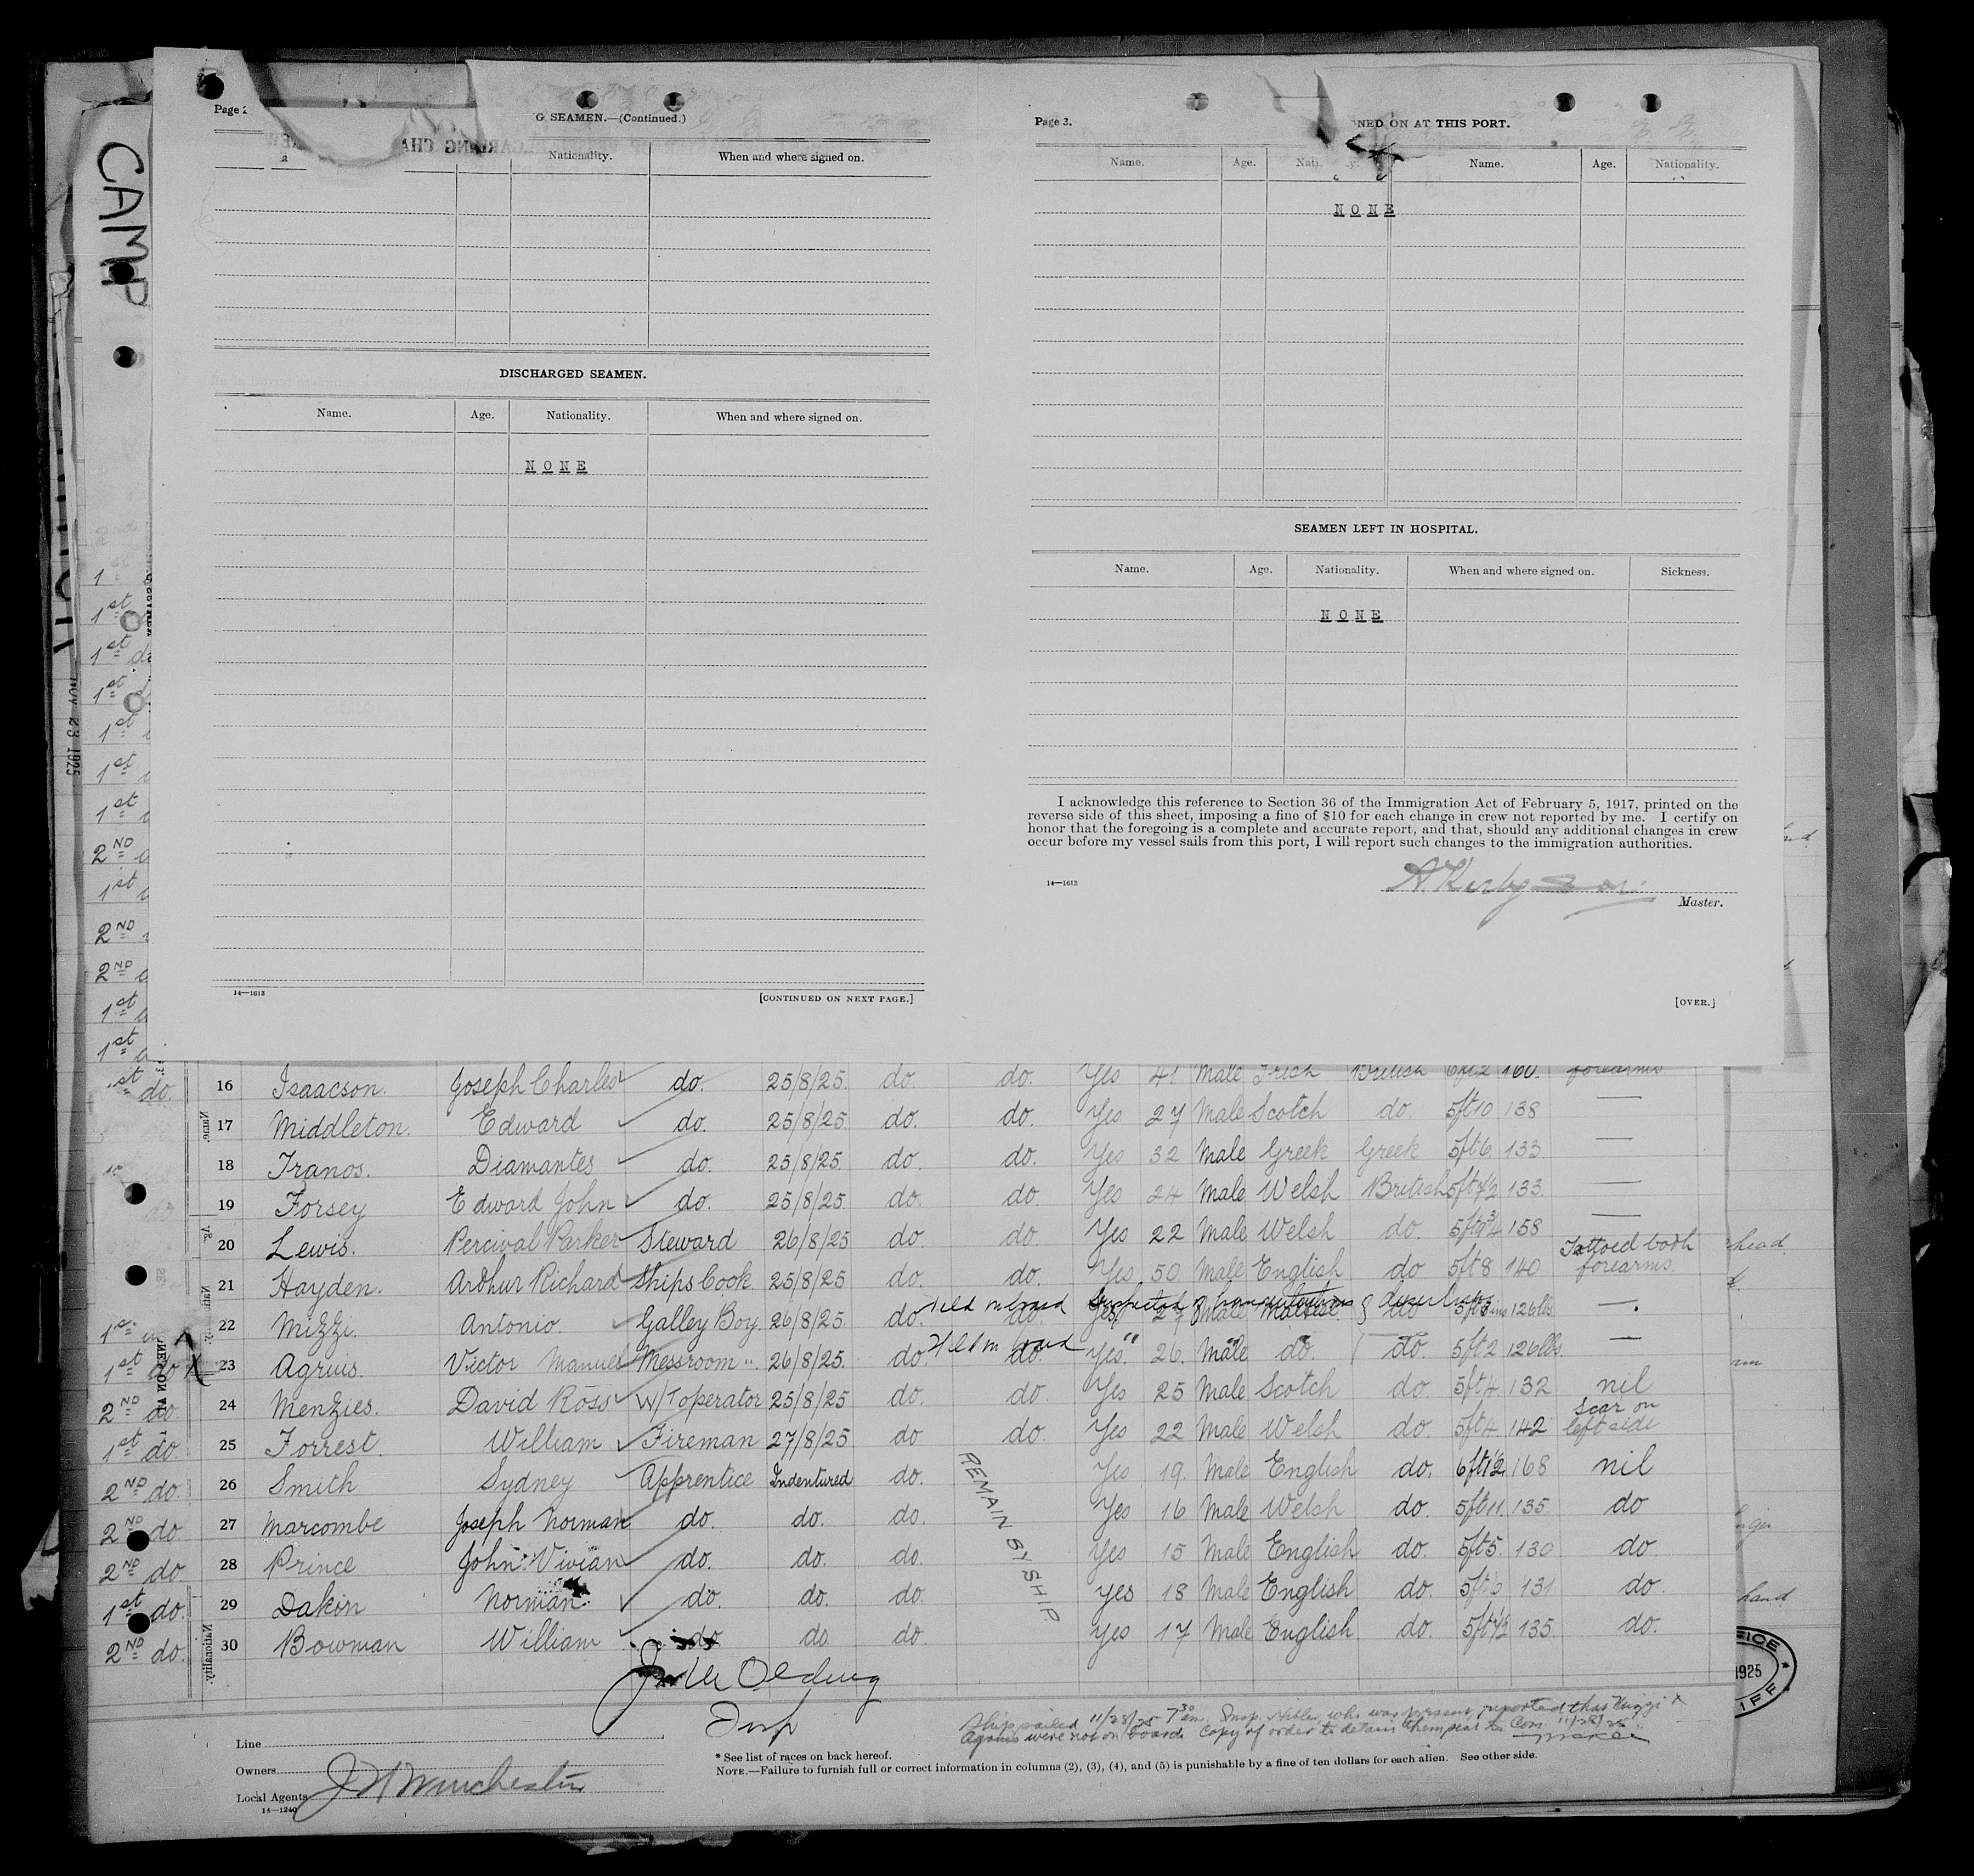 CAMP
NOV 23 1925
Page 2
G SEAMEN.—(Continued.)
Nationality. When and where signed on.
DISCHARGED SEAMEN.
Name. Age. Nationality. When and where signed on.
NONE
14—1613
[CONTINUED ON NEXT PAGE.]
Page 3.
NED ON AT THIS PORT.
Name. Age. Name. Age. Nationality.
NONE
SEAMEN LEFT IN HOSPITAL.
Name. Age. Nationality. When and where signed on. Sickness.
NONE
I acknowledge this reference to Section 36 of the Immigration Act of February 5, 1917, printed on the
reverse side of this sheet, imposing a fine of $10 for each change in crew not reported by me. I certify on
honor that the foregoing is a complete and accurate report, and that, should any additional changes in crew
occur before my vessel sails from this port, I will report such changes to the immigration authorities.
14—1613
A. Kerby
Master.
[OVER.]
do. 16 Isaacson. Joseph Charles do. 25/8/25. do. do. Yes 41 Male Irish British 160. forearms
17 Middleton. Edward do. 25/8/25. do. do. Yes 27 Male Scotch do. 5ft10 138 —
18 Tranos. Diamantes do. 25/8/25. do. do. Yes 32 Male Greek Greek 5ft6 133 —
19 Forsey Edward John do. 25/8/25. do. do. Yes 24 Male Welsh British 133. —
20 Lewis. Percival Parker Steward 26/8/25 do. do. Yes 22 Male Welsh do. 158 —
21 Hayden. Arthur Richard Ships Cook 25/8/25 do. do. Yes 50 Male English do 5ft8 140 Tattoed both forearms.
22 Mizzi. Antonio. Galley Boy. 26/8/25. do. Held on board do. Yes 27 Male Maltese do 126lbs —.
1st do 23 Agruis. Victor Manuel Messroom " 26/8/25. do. Held on board do. Yes. 26. Male do. do. 5ft2 126lbs. —
2ND do. 24 Menzies. David Ross W/T operator 25/8/25 do. do. Yes 25 Male Scotch do. 5ft4. 132 nil
1st do. 25 Forrest. William Fireman 27/8/25 do do. Yes 22 Male Welsh do. 5ft4. 142 Scar on left side
2ND do. 26 Smith Sydney Apprentice Indentured do. Yes 19. Male English do. 168 nil
2ND do. 27 Marcombe Joseph Norman do. do. do. Yes 16 Male Welsh do. 5ft11. 135 do
2ND do. 28 Prince John Vivian do. do. do. Yes 15 Male English do. 5ft5. 130 do
1st do. 29 Dakin Norman do. do. do. Yes 18 Male English do. 131 do.
2ND do. 30 Bowman William do do do. Yes 17 Male English do. 135. do.
REMAIN BY SHIP
Olding
Insp
Ship sailed 11/28/25 7 30 am. Insp. who was present, reported that Mizzi &
Agruis were not on board. Copy of order to detain them sent to Com. 11/28/25.
Line
Owners
Local Agents J W Winchester
14—1240
* See list of races on back hereof.
NOTE.—Failure to furnish full or correct information in columns (2), (3), (4), and (5) is punishable by a fine of ten dollars for each alien. See other side.
head
hand
1925